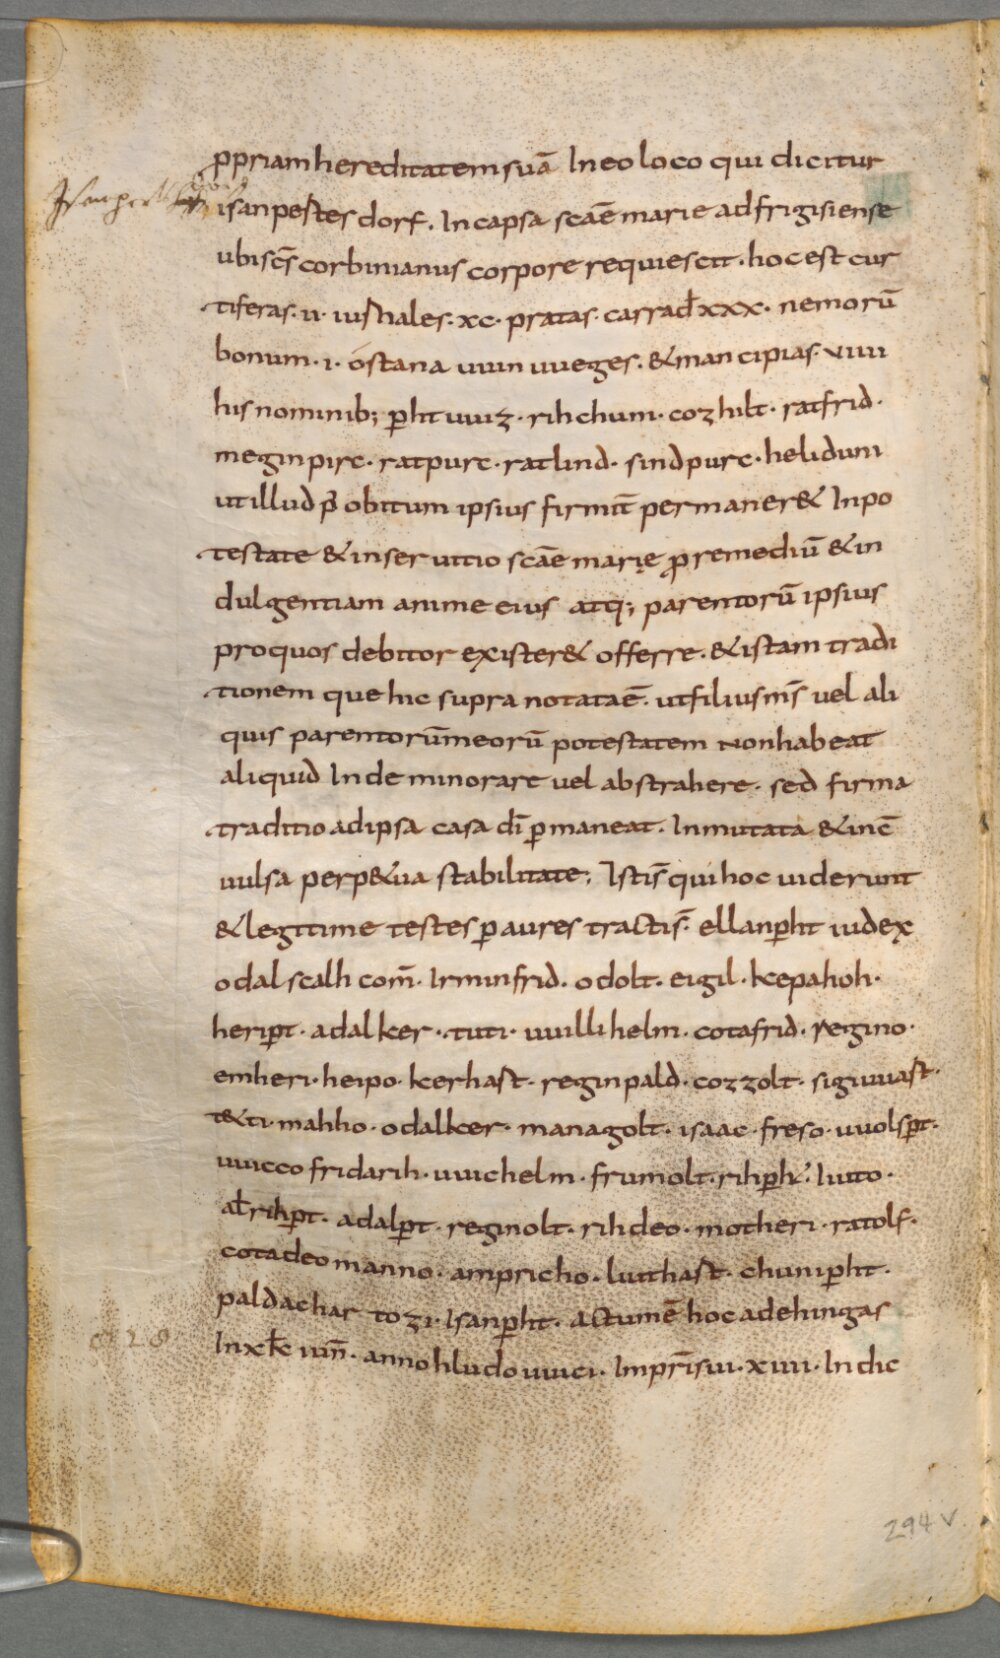 ꝓpriam hereditatem suā In eo loco qui dicitur
isanpestes dorf. In capsa scāe marie ad frigisiense
ubi sc̄s corbinianus corpore requiescit. hoc est cur
tiferas. ii. iurnales. xc. pratas. carrad̄ xxx. nemorū
bonum. i. óstana uuin uueges. & mancipias. viiii
his nominib; ꝑht uuiz. rihchum. cozhilt. ratfrid.
meginpirc. ratpurc. ratlind. sindpurc. heliduni
ut illud p̄ obitum ipsius firmit̄ permaner& In po
testate & in seruitio scāe marię ꝓ remediū & in
dulgentiam anime eius atq; parentorū ipsius
pro quos debitor exister& offerre. & istam tradi
tionem que hic supra notata ē. ut filius ms̄ vel ali
quis parentorū meorū potestatem Non habeat
aliquid Inde minorare vel abstrahere. sed firma
traditio ad ipsa casa dī ꝑmaneat. Inmutata & inc̄
uulsa perp&ua stabilitate; Istis̄ qui hoc uiderunt
& legitime testes ꝑ aures tractis̄. ellanꝑht iudex
odalscalh com̄. Irminfrid. odolt. eigil. kepahoh.
heriꝑt. adalker. tuti. uuillihelm. cotafrid. regino.
emheri. heipo. kerhast. reginpald. cozzolt. sigiuuast.
t&ti. mahho. odalker. managolt. isaac. freso. uuolfꝑt.
uuicco fridarih. uuichelm. frumolt. rihꝑh̄t. Iutto.
alt̄rihꝑt. adalꝑt. reginolt. rihdeo. motheri. ratolf.
cotadeo manno. ampricho. liuthast. chuniꝑht.
paldachar tozi. Isanꝑht. actum ē hoc ad ehingas
In xk̄ iun̄. anno hludouuici. Imꝑris̄ ui. xiiii. Indic
828
294 v